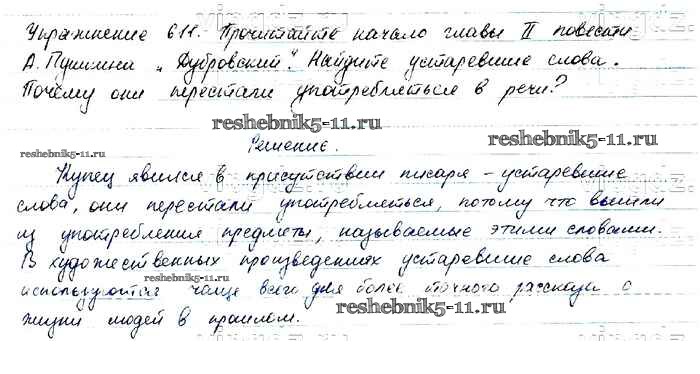 Упражнение 611. Прочитайте начало главы II повести
А. Пушкина „Дубровский". Найдите устаревшие слова.
Почему они перестали употребляться в речи?
reshebnik5-11.ru
reshebnik5-11.ru
Решение.
reshebnik5-11.ru
Купец явился в присутствии писаря – устаревшие
слова, они перестали употребляться, потому что вышли
из употребления предметы, называемые этими словами.
В художественных произведениях устаревшие слова
reshebnik5-11.ru
используются чаще всего для более точного рассказа о
жизни людей в прошлом.
reshebnik5-11.ru